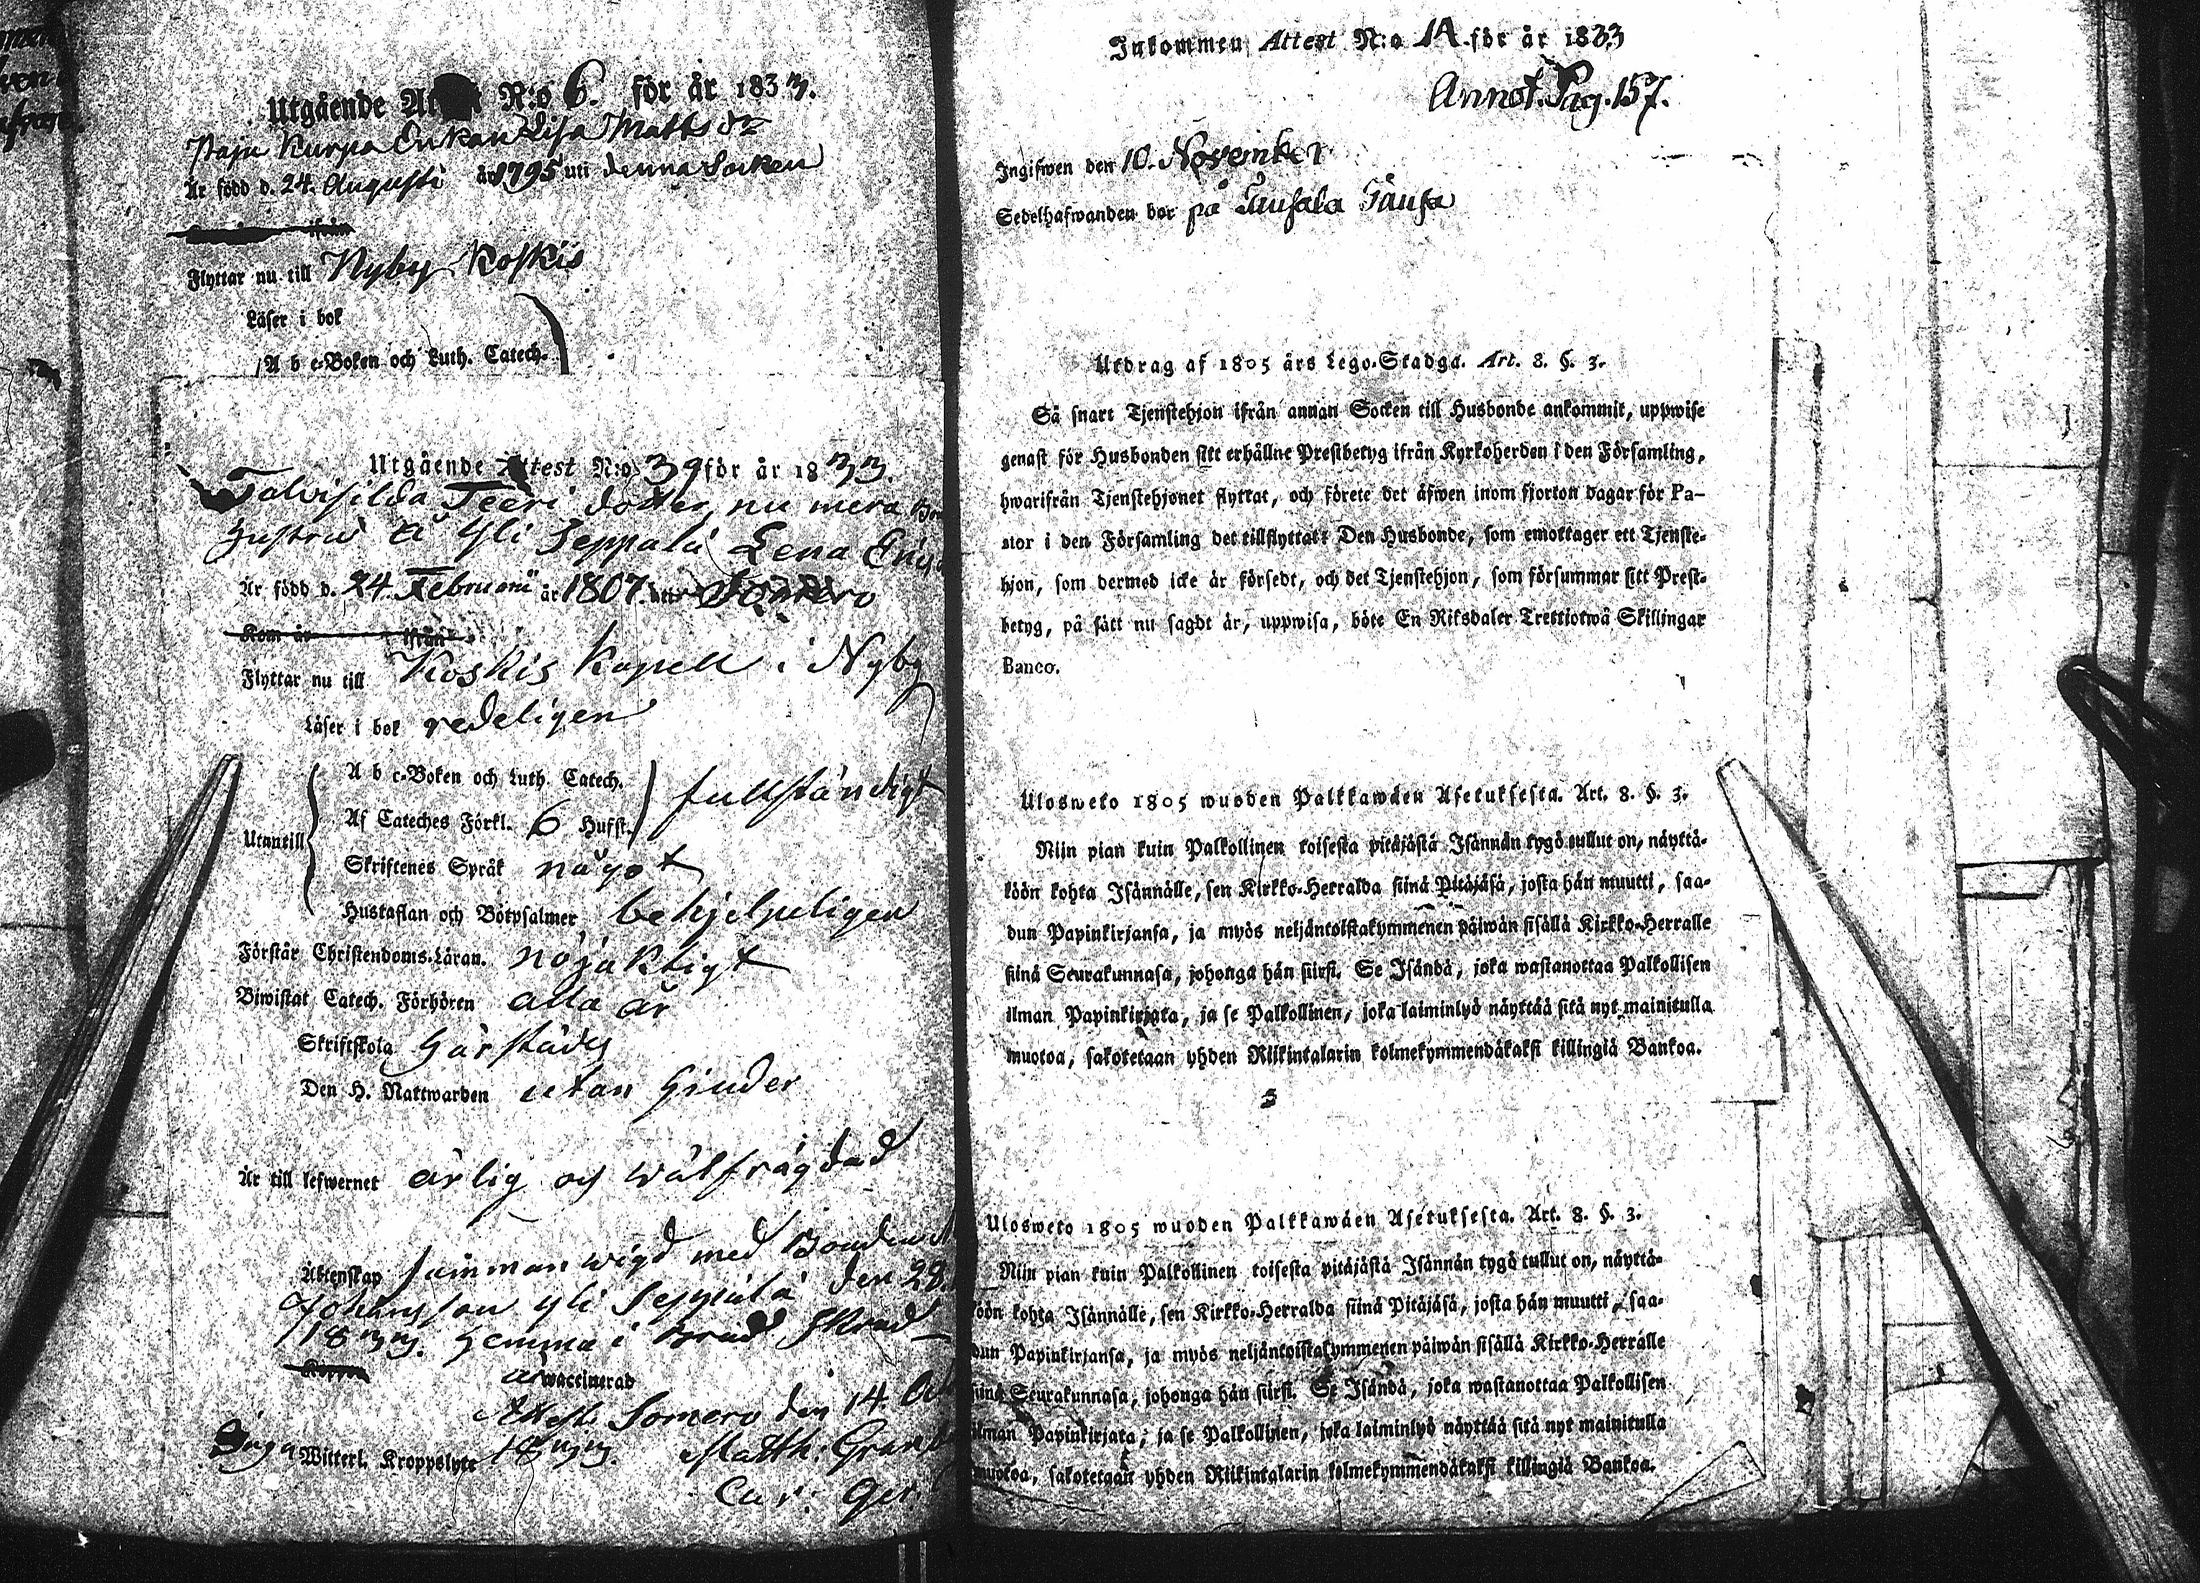 Utgående At N:o 6. för år 1833.
Paju Kurpa Enkan Lisa Matts dr
Är född d. 24. Augusti år 1795 uti denna Socken
ifrån
Flyttar nu till Nyby Koskis
Läser i bok
A b c-Boken och Luth. Catech.
Utgående Attest N:o 39 för år 1833.
Talvisilda Teeri dotter, nu mera
hustru å Yli Seppälä Lena
Är född d. 24 Februarii år 1807. uti Somero
Kom år ifrån
Flyttar nu till Koskis Kapell i Nyby
Läser i bok redeligen
A b c-Boken och Luth. Catech.
fullständigt
Af Cateches Förkl. 6 Hufst.
Utantill
Skriftenes Språk något
Hustaflan och Botpsalmer behjelpeligen
Förstår Christendoms-Läran. nöjaktigt
Biwistat Catech. Förhören alla år
Skriftskola härstädes
Den H. Nattwarden utan hinder
Är till lefwernet ärlig och wälfrägdad
Äktenskap samman wigd med Bonden
Johansson Yli Seppälä den 28
1833. hemma i Brud Skrud
är waccinerad
Attest. Somero den 14.
Inga Witterl. Kroppslyte 1833. Matth:
Cur: Ger.
Inkommen Attest N:o 14 för år 1833
Annot. Pag. 157.
Ingifwen den 10. November
Sedelhafwanden bor på Tausala
Utdrag af 1805 års Lego-Stadga. Art. 8. §. 3.
Så snart Tjenstehjon ifrån annan Socken till Husbonde ankommit, uppwise
genast för Husbonden sitt erhållne Prestbetyg ifrån Kyrkoherden i den Församling,
hwarifrån Tjenstehjonet flyttat, och förete det äfwen inom fjorton dagar för Pa-
stor i den Församling det tillflyttat: Den Husbonde, som emottager ett Tjenste-
hjon, som dermed icke är försedt, och det Tjenstehjon, som försummar sitt Prest-
betyg, på sätt nu sagdt är, uppwisa, böte En Riksdaler Trettiotwå Skillingar
Banco.
Uloswето 1805 wuoden Palkkawäen Asetuksesta. Art. 8. §. 3.
Niin pian kuin Palkollinen toisesta pitäjästä Isännän tygö tullut on, näyttä-
köön kohta Isännälle, sen Kirkko-Herralda siinä Pitäjäsä, josta hän muutti, saa-
dun Papinkirjansa, ja myös neljäntoistakymmenen päiwän sisällä Kirkko-Herralle
siinä Seurakunnasa, johonga hän siirsi. Se Isändä, joka wastanottaa Palkollisen
ilman Papinkirjata, ja se Palkollinen, joka laiminlyö näyttää sitä nyt mainitulla
muotoa, sakotetaan yhden Riikintalarin kolmekymmendäkaksi killingiä Bankoa.
Uloswето 1805 wuoden Palkkawäen Asetuksesta. Art. 8. §. 3.
Niin pian kuin Palkollinen toisesta pitäjästä Isännän tygö tullut on, näyttä-
öön kohta Isännälle, sen Kirkko-Herralda siinä Pitäjäsä, josta hän muutti, saa-
dun Papinkirjansa, ja myös neljäntoistakymmenen päiwän sisällä Kirkko-Herralle
siinä Seurakunnasa, johonga hän siirsi. Se Isändä, joka wastanottaa Palkollisen
ilman Papinkirjata, ja se Palkollinen, joka laiminlyö näyttää sitä nyt mainitulla
muotoa, sakotetaan yhden Riikintalarin kolmekymmendäkaksi killingiä Bankoa.